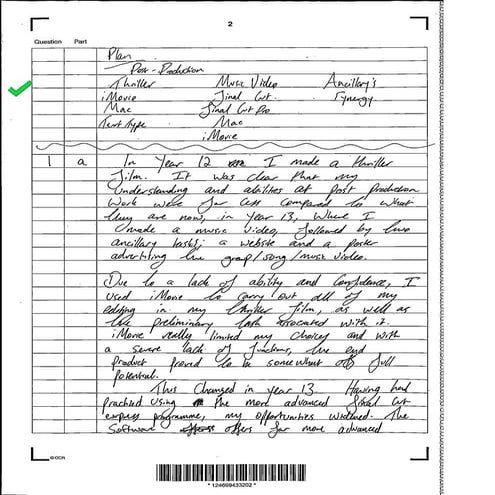 2
Question Part
Plan
Post-Production
Thriller Music Video Ancillary's
iMovie Final Cut. Synergy
Mac Final Cut Pro
Text Type Mac
iMovie
1 a In Year 12 I made a thriller
film. It was clear that my
understanding and abilities at Post Production
work were far less compared to what
they are now, in year 13, where I
made a music video, followed by two
ancillary tasks; a website and a poster
advertising the group/song/music video.
Due to a lack of ability and confidence, I
used iMovie to carry out all of my
editing in my thriller film, as well as
the preliminary task associated with it.
iMovie really limited my choices and with
a severe lack of functions, the end
product proved to be somewhat off full
potential.
This changed in year 13. Having had
practised using the more advanced Final Cut
express programme, my opportunities widened. The
Software offers far more advanced
©OCR
* 124699433202 *